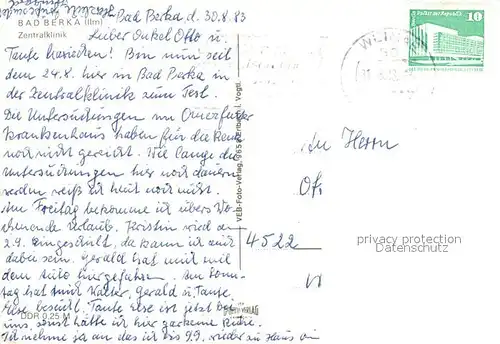 BAD BERKA (Ilm)
Zentralklinik
Bad Berka, d. 30.8.83
Lieber Onkel Otto u.
Tante Mariechen! Bin nun seit
dem 24.8. hier in Bad Berka in
der Zentralklinik zum Test.
Die Untersuchungen im Erfurter
Krankenhaus haben für die Rente
noch nicht gereicht. Wie lange die
Untersuchungen hier noch dauern
werden weiß ich heut noch nicht.
Am Freitag bekomme ich übers Wo-
chenende Urlaub. Kristin wird am
2.9. eingeschult, da kann ich mit
dabei sein. Gerald hat mich mit
dem Auto hergefahren. Am Sonn-
tag hat mich Walter, Gerald u. Tante
Else besucht. Tante Else ist jetzt bei
uns, sonst hätte ich hier gar keine Ruhe.
Ich nehme ja an das ich bis 9.9. wieder zu Haus bin
DDR 0,25 M
VEB-Foto-Verlag, 9652 Klingenthal i. Vogtl.
10
An Herrn
4522
privacy protection
Datenschutz